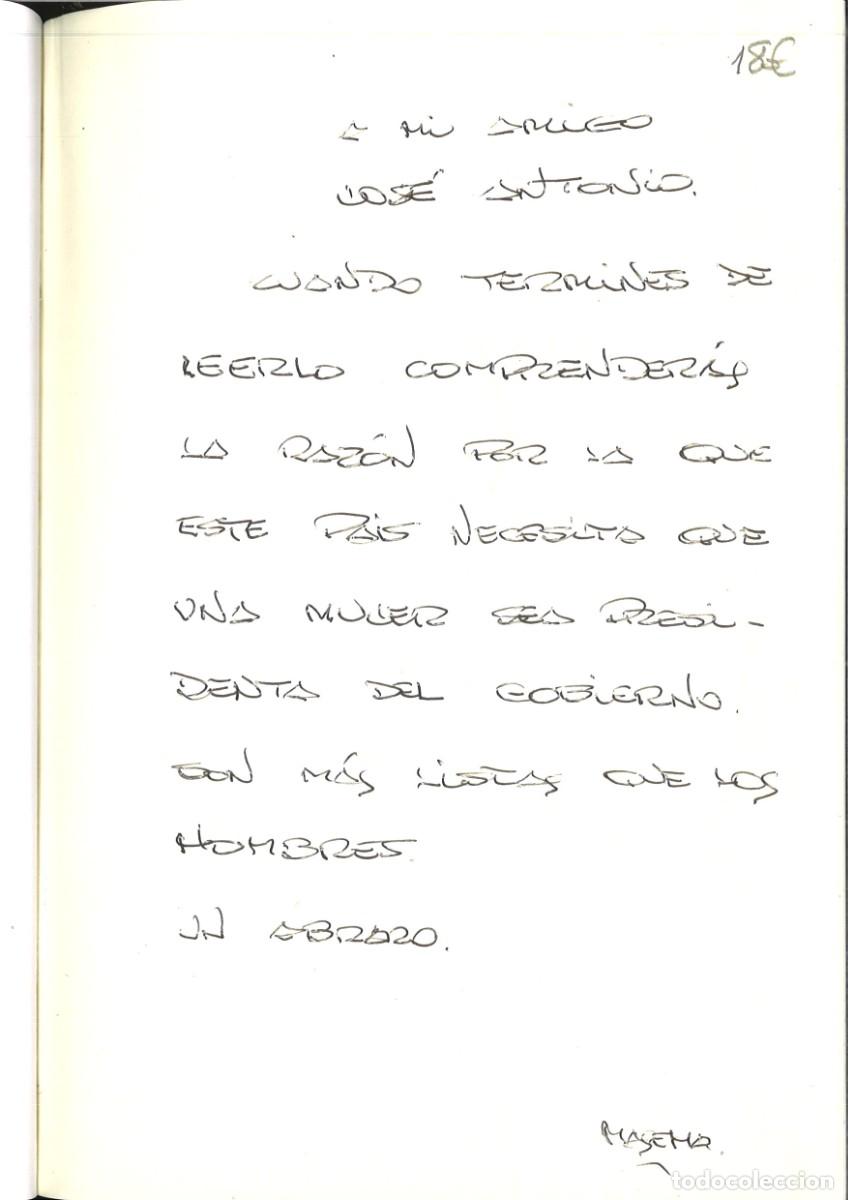 18€
A MI AMIGO
JOSÉ ANTONIO.
CUANDO TERMINES DE
LEERLO COMPRENDERÁS
LA RAZÓN POR LA QUE
ESTE PAIS NECESITA QUE
UNA MUJER SEA PRESI-
DENTA DEL GOBIERNO.
SON MÁS LISTAS QUE LOS
HOMBRES.
UN ABRAZO.
todocoleccion